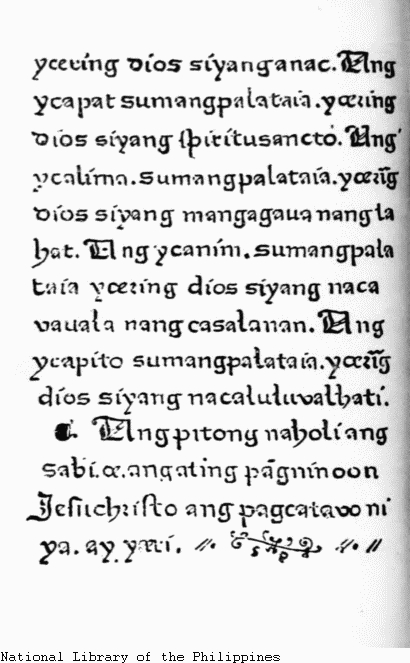 yceríng díos síyang anac. Ang
ycapat sumangpalataía. yœríng
díos síyang ſpirítusanctó. Ang
ycalíma. sumangpalataía. yœrĩg
díos síyang mangagaua nang la
hat. Ang ycaním. sumangpala
taía yceríng díos síyang naca
vauala nang casalanan. Ang
ycapíto sumangpalataía. yœrĩg
díos síyang nacaluluvalhatí.
Ang pitong naholí ang
sabí. œ. ang ating pãgninoon
Jeſuchríſto ang pagcatavo ni
ya. ay yœrí.
National Library of the Philippines